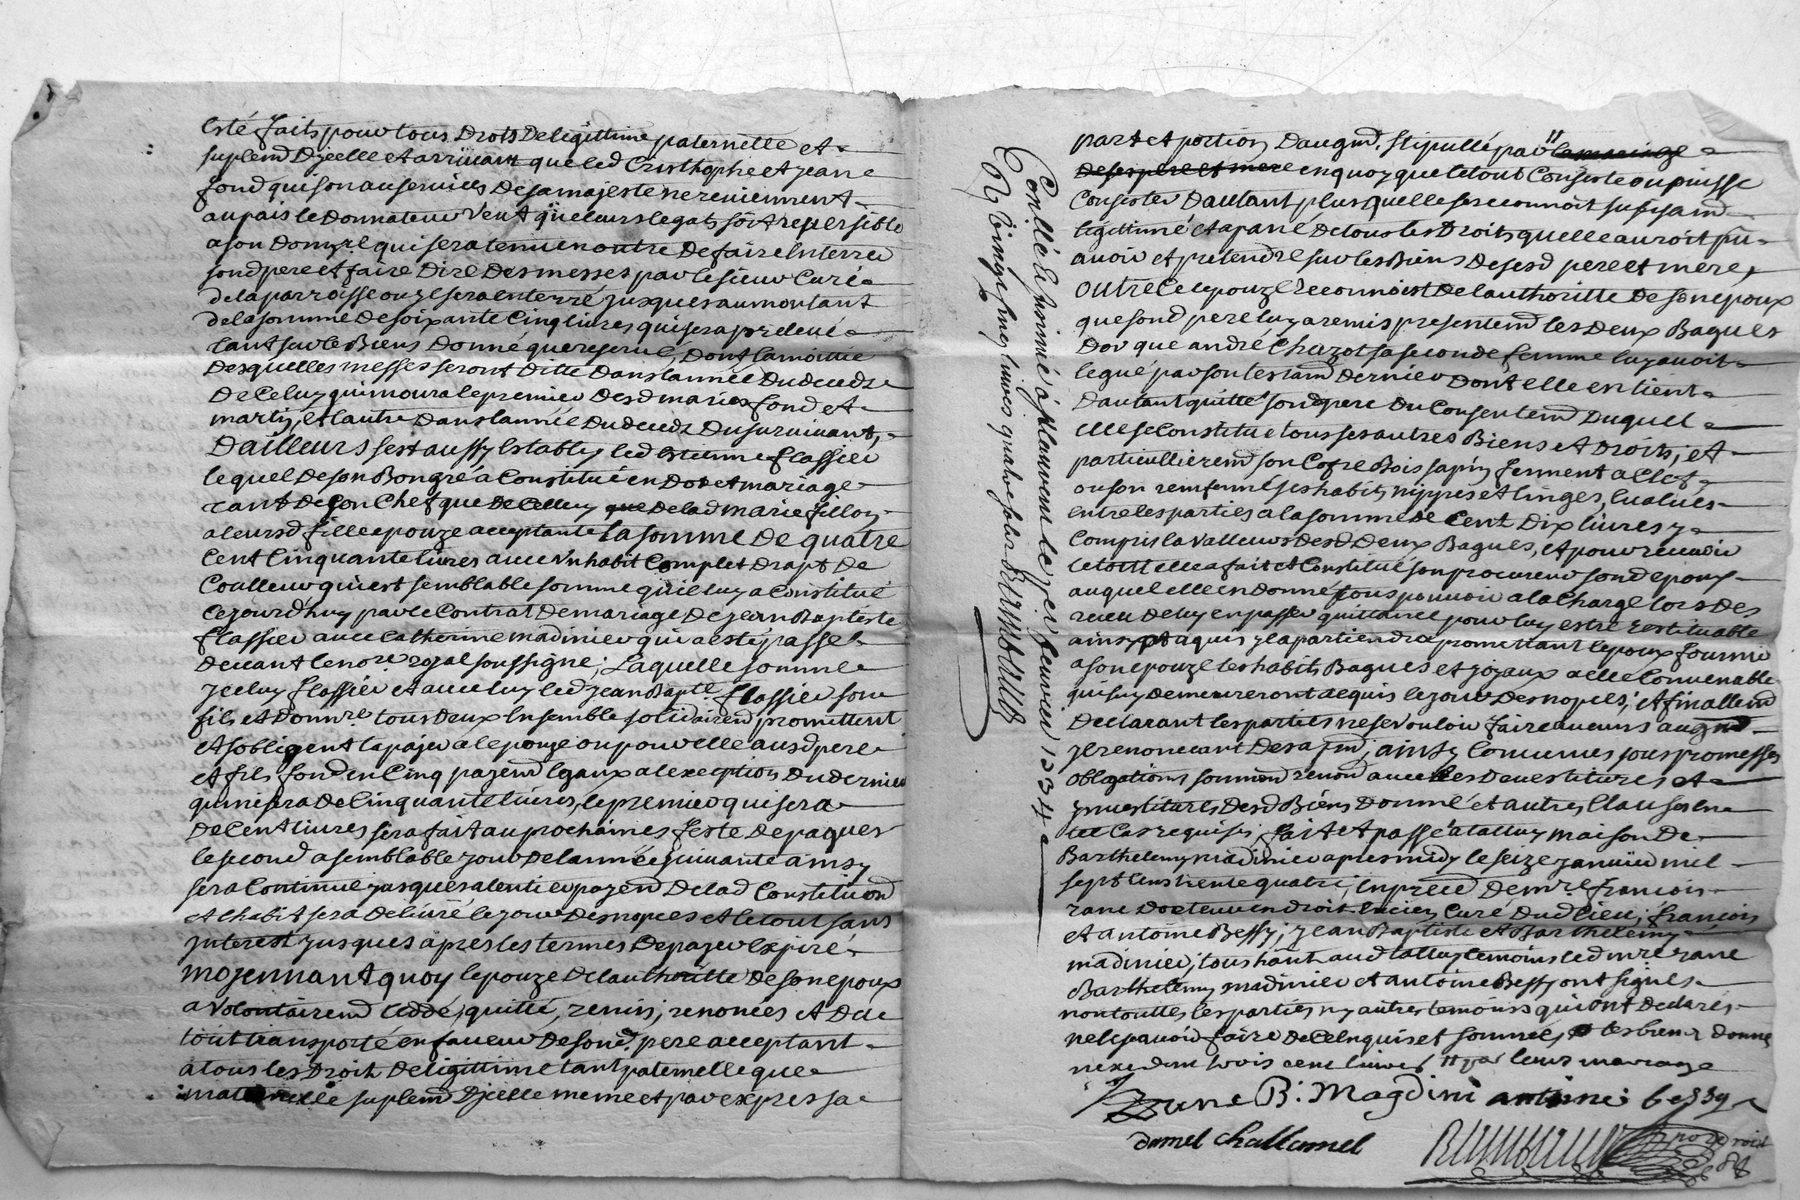 esté faits pour tous Droits De legittime paternelle et
suplemd Djcelle et arrivant que led Cristhophe et jean
fond qui son au services De sa majeste ne reviennent
au païs le Donnateur veut que leurs legats soit reversible
a son Donnre qui sera tenu en outre De faire Enterrer
sond pere et faire Dire Des messes par le sieur Curé
de la parroisse ou jl sera enterré jusques au montant
de la somme De soixante Cinq livres qui sera prelevé
tant sur les Biens Donné que reservé, Dont la moittié
Desquelles messes seront Ditte Dans lannée Du deceds
De Celuy qui moura le premier Desd maries fond et
martin, et lautre Dans lannée Du deceds Du survivant,
Dailleurs sest aussy Estably led Estienne flassier
lequel De son Bon gré a Constitué en Dot et mariage
tant De son Chef que De Celluy que De lad marie fillon
a leursd fille epouze acceptante La somme De quatre
Cent Cinquante livres avec un habit Complet Drapt De
Coulleur qui est semblable somme quil luy a Constitué
Cejourd'huy par le Contrat De mariage De jean Baptiste
flassier avec Catherine madinier qui a esté passé
Devant le nore royal soussigné, Laquelle somme
jceluy flassier et avec luy led jean Bapte flassier son
fils et Donnre tous Deux Ensemble solidairemd promettent
et sobligent la payer a lepouze ou pour elle ausd pere
et fils fond en Cinq payemd Egaux a lexception Du dernier
qui ne sera De Cinquante livres, le premier qui sera
De Cent livres sera fait au prochaines feste De paques
le second a semblable jour De lannee suivante ainsy
sera Continué jusques a lentier payemd De lad Constitutiond
et lhabit sera Delivré le jour Des nopces et le tout sans
jnterest jusques apres les termes De payer Expiré
moyennant quoy lepouze De lauthoritte De son epoux
a Volontairemd Ceddé, quitté, remis, renoncés et De
tout transporté en faveur De sond pere acceptant
a tous les Droit De legittime tant paternelle que
maternelle suplemd Djcelle meme et par expres sa
Coñllé insinué a planvent le jer fevrier 1734
R vingt
part et portion Daugmd. stipullé par " le mariage
De ses pere et mere en quoy que le tout Consiste ou puisse
Consister Dautant plus quelle se reconnoit sufisamd
legittimé et apané De tous les Droits quelle auroit pu
avoir et pretendre sur les Biens De sesd pere et mere,
outre Ce lepouze reconnoist De lauthoritte De son epoux
que sond pere luy a remis presentemd les Deux Bagues
Dor que andré Chazot sa seconde femme luy avoit
legué par son testamd Dernier Dont elle en tient
Dautant quitte sond pere Du Consentemd Duquel
elle se Constitue tous ses autres Biens et Droits, et
particullieremd son Cofre Bois sapin fermant a Clef
ou son remfermé ses habits nippes et linges, Evalués
entre les parties a la somme De Cent Dix livres y
Compris la valleur Desd Deux Bagues, et pour recevoir
le tout elle a fait et Constitué son procureur sond epoux
auquel elle en Donne tous pouvoir a la Charge lors Des
receu De luy en passer quittance pour luy estre restituable
ainsy et a qui jl apartiendra promettant lepoux fournir
a son epouze les habits Bagues et joyaux a elle Convenable
qui luy Demeureront acquis le jour Des nopces; et finallemd
Declarant les parties ne se vouloir faire aucuns augmd
jl renoncant Des a psnd, ainsy Convenus sous promesses
obligations soumond renond avec les Devestitures et
jnvestitures Desd Biens Donné et autres Clauses en
tel Cas requises, fait et passé a talluy maison De
Barthelemy madinier apres midy le seize janvier mil
sept Cens trente quatre, En presd De mre francois
rane Docteur en Droit Encien Curé Dud lieu, francois
et antoine Bessy, jean Baptiste et Barthelemy
madinier, tous habit aud talluy temoins led mre rane
Barthelemy madinier et antoine Bessy ont signés
non touttes les parties ny autres temoins qui ont Declarés
ne le scavoir faire De Ce Enquis et sommés les biens donné
nexedent trois cent livres " par leurs mariage
Rane B: Magdini antoine bessy
damel challamel